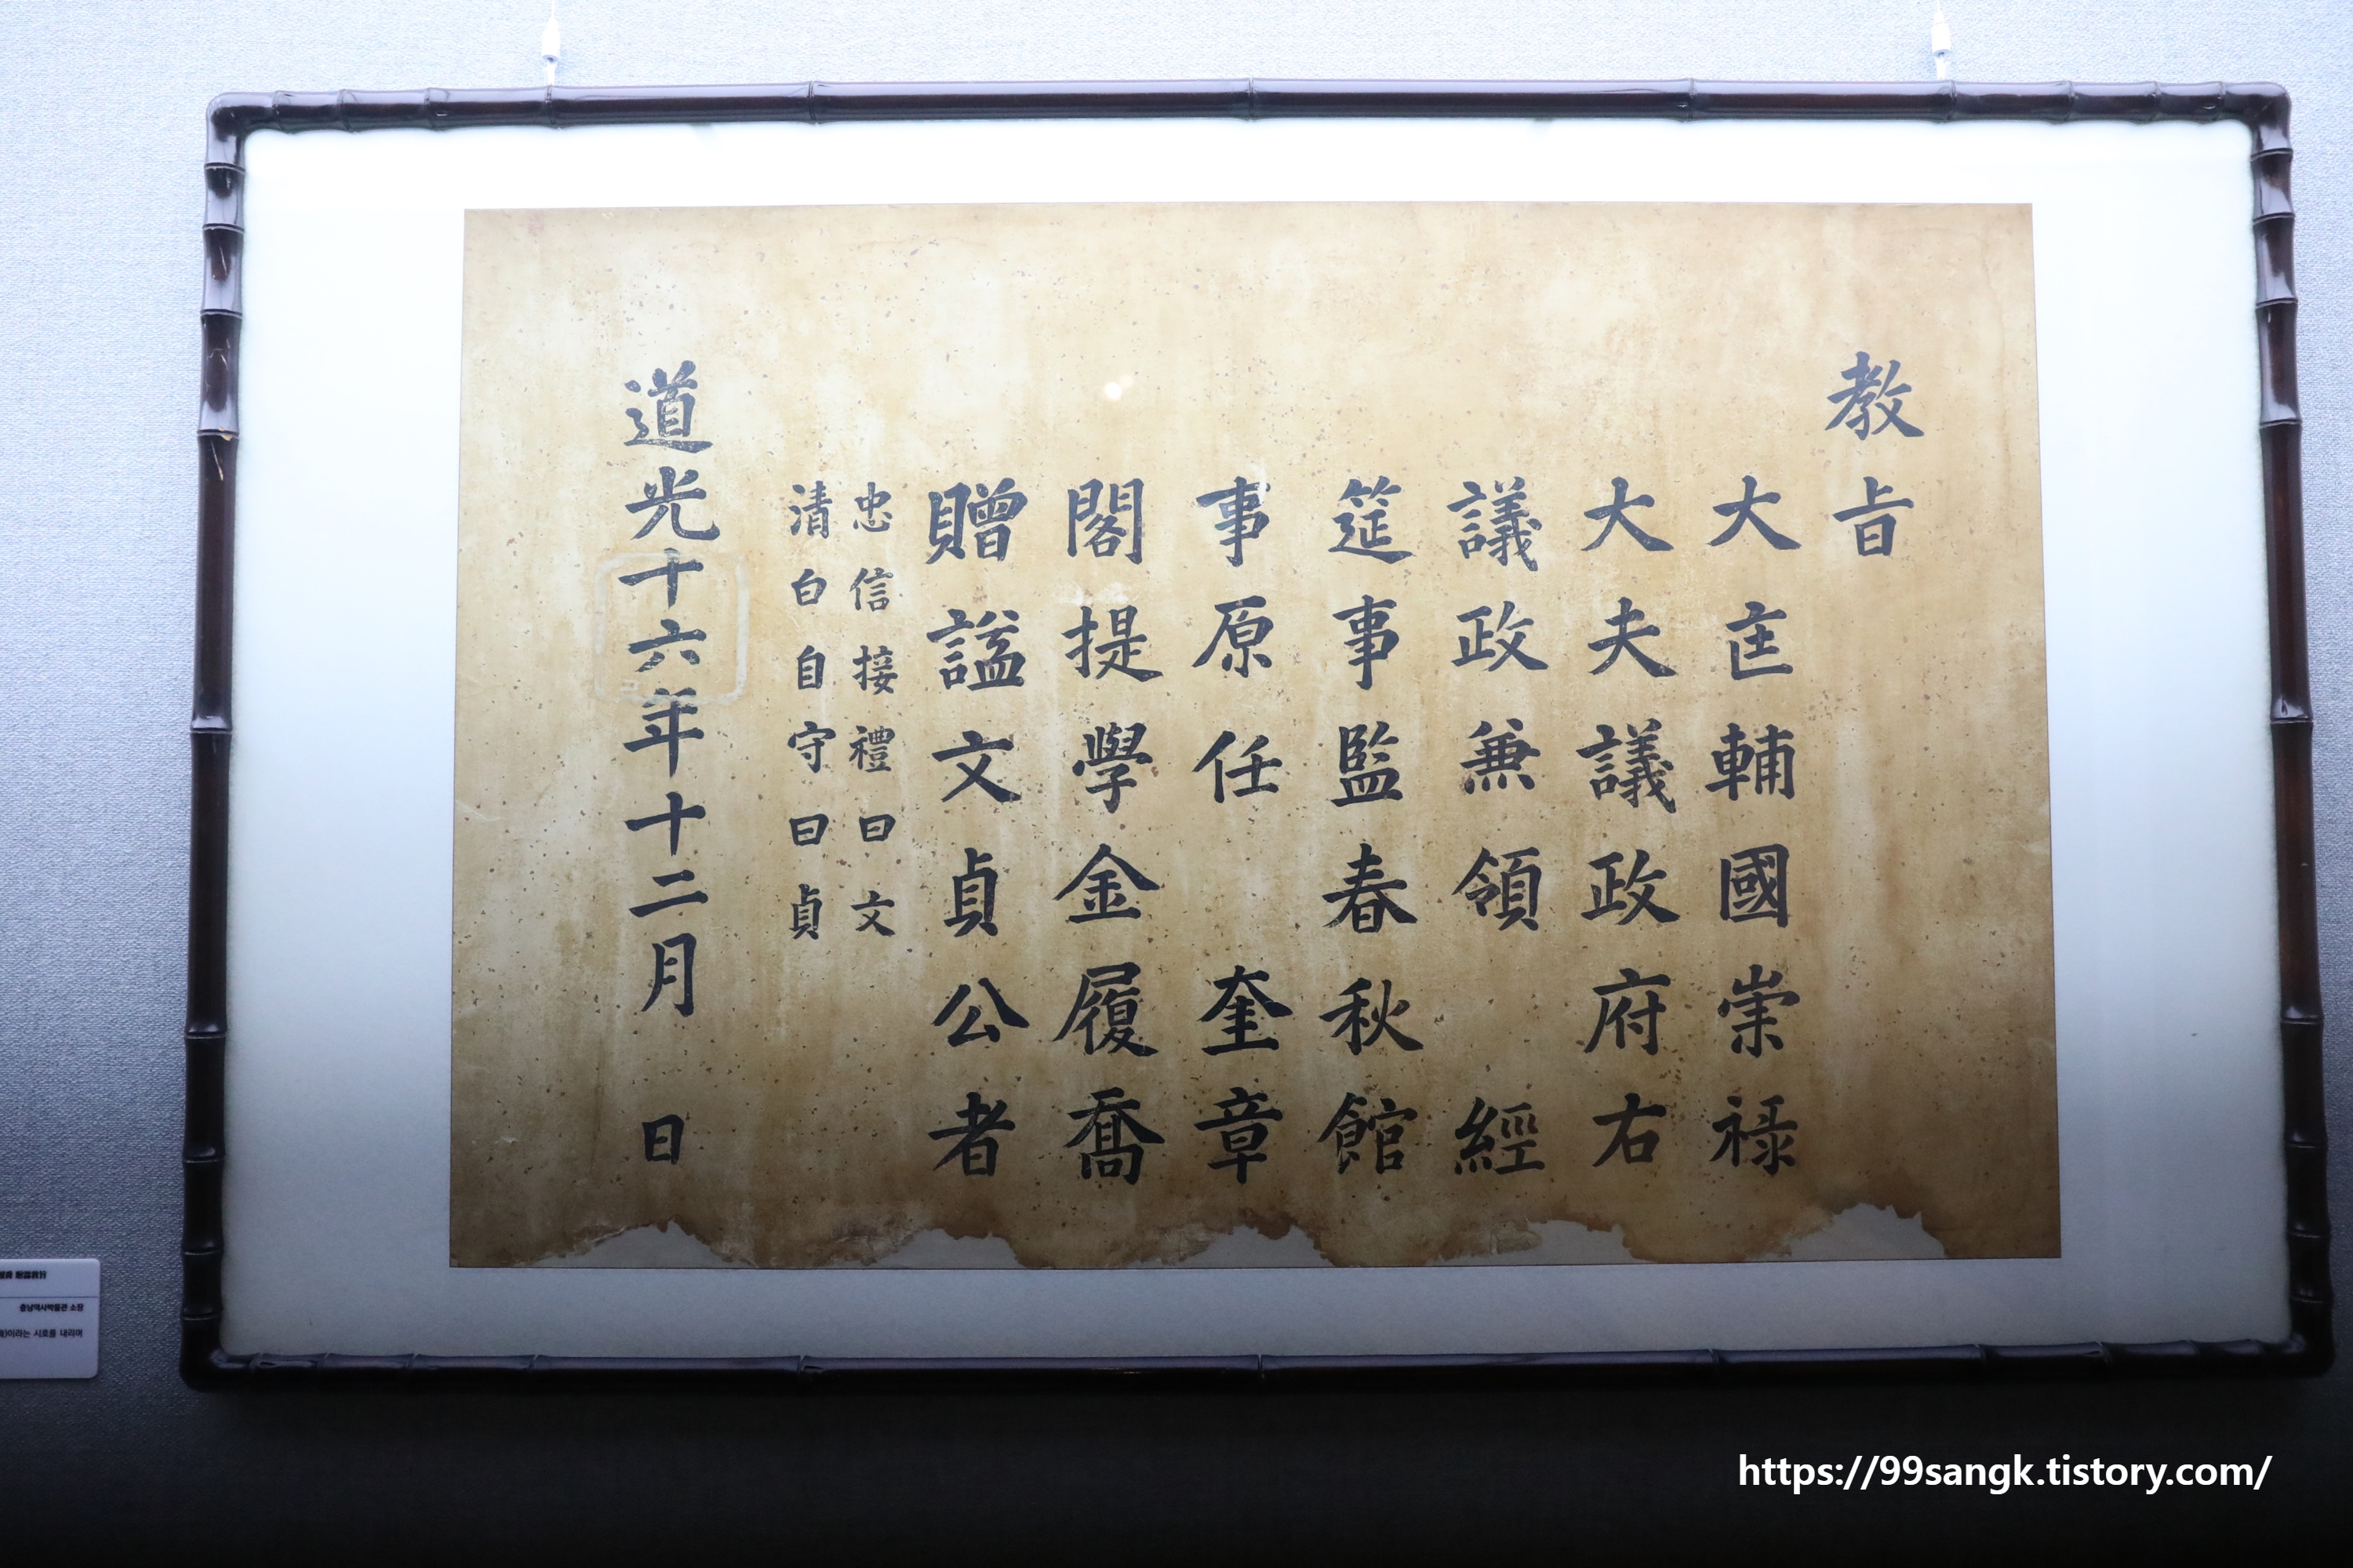 教旨
大匡輔國崇祿
大夫議政府右
議政兼領 經
筵事監春秋館
事原任 奎章
閣提學金履喬
贈諡文貞公者
忠信接禮曰文
清白自守曰貞
道光十六年十二月 日
충남역사박물관 소장
이라는 시호를 내리며
https://99sangk.tistory.com/